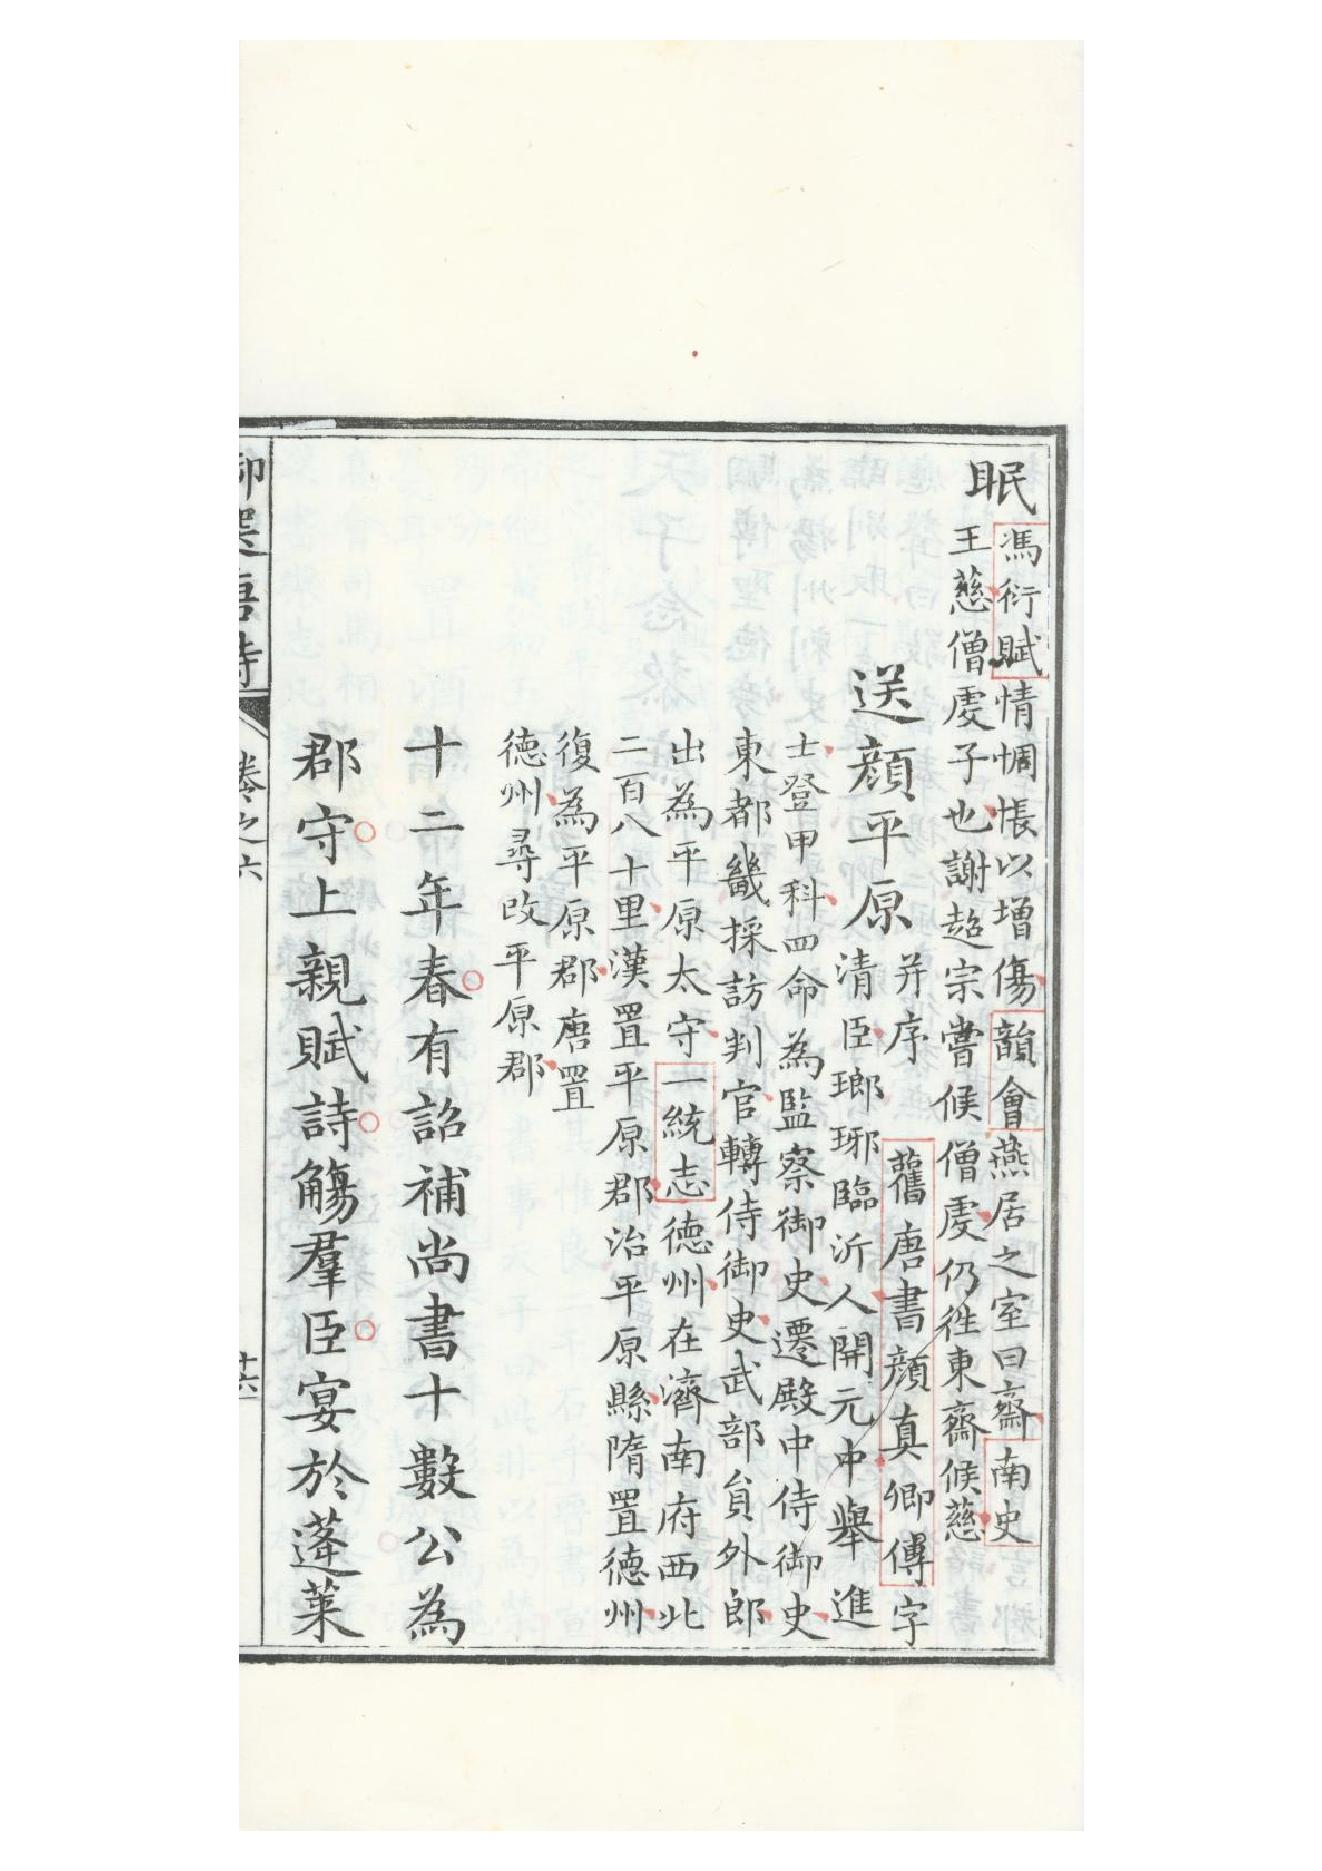 眠
馮衍賦情惆悵以增傷韻會燕居之室曰齋南史
王慈僧虔子也謝超宗嘗候僧虔仍徃東齋候慈
送顔平原
并序舊唐書顔真卿傳字
清臣瑯琊臨沂人開元中舉進
士登甲科四命為監察御史遷殿中侍御史
東都畿採訪判官轉侍御史武部貟外郎
出為平原太守一統志德州在濟南府西北
二百八十里漢置平原郡治平原縣隋置德州
復為平原郡唐置
德州尋改平原郡
十二年春有詔補尚書十數公為
郡守上親賦詩觴羣臣宴於蓬萊
御選唐詩
卷之六
十六